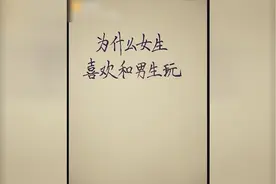 为什么女生
喜欢和男生玩